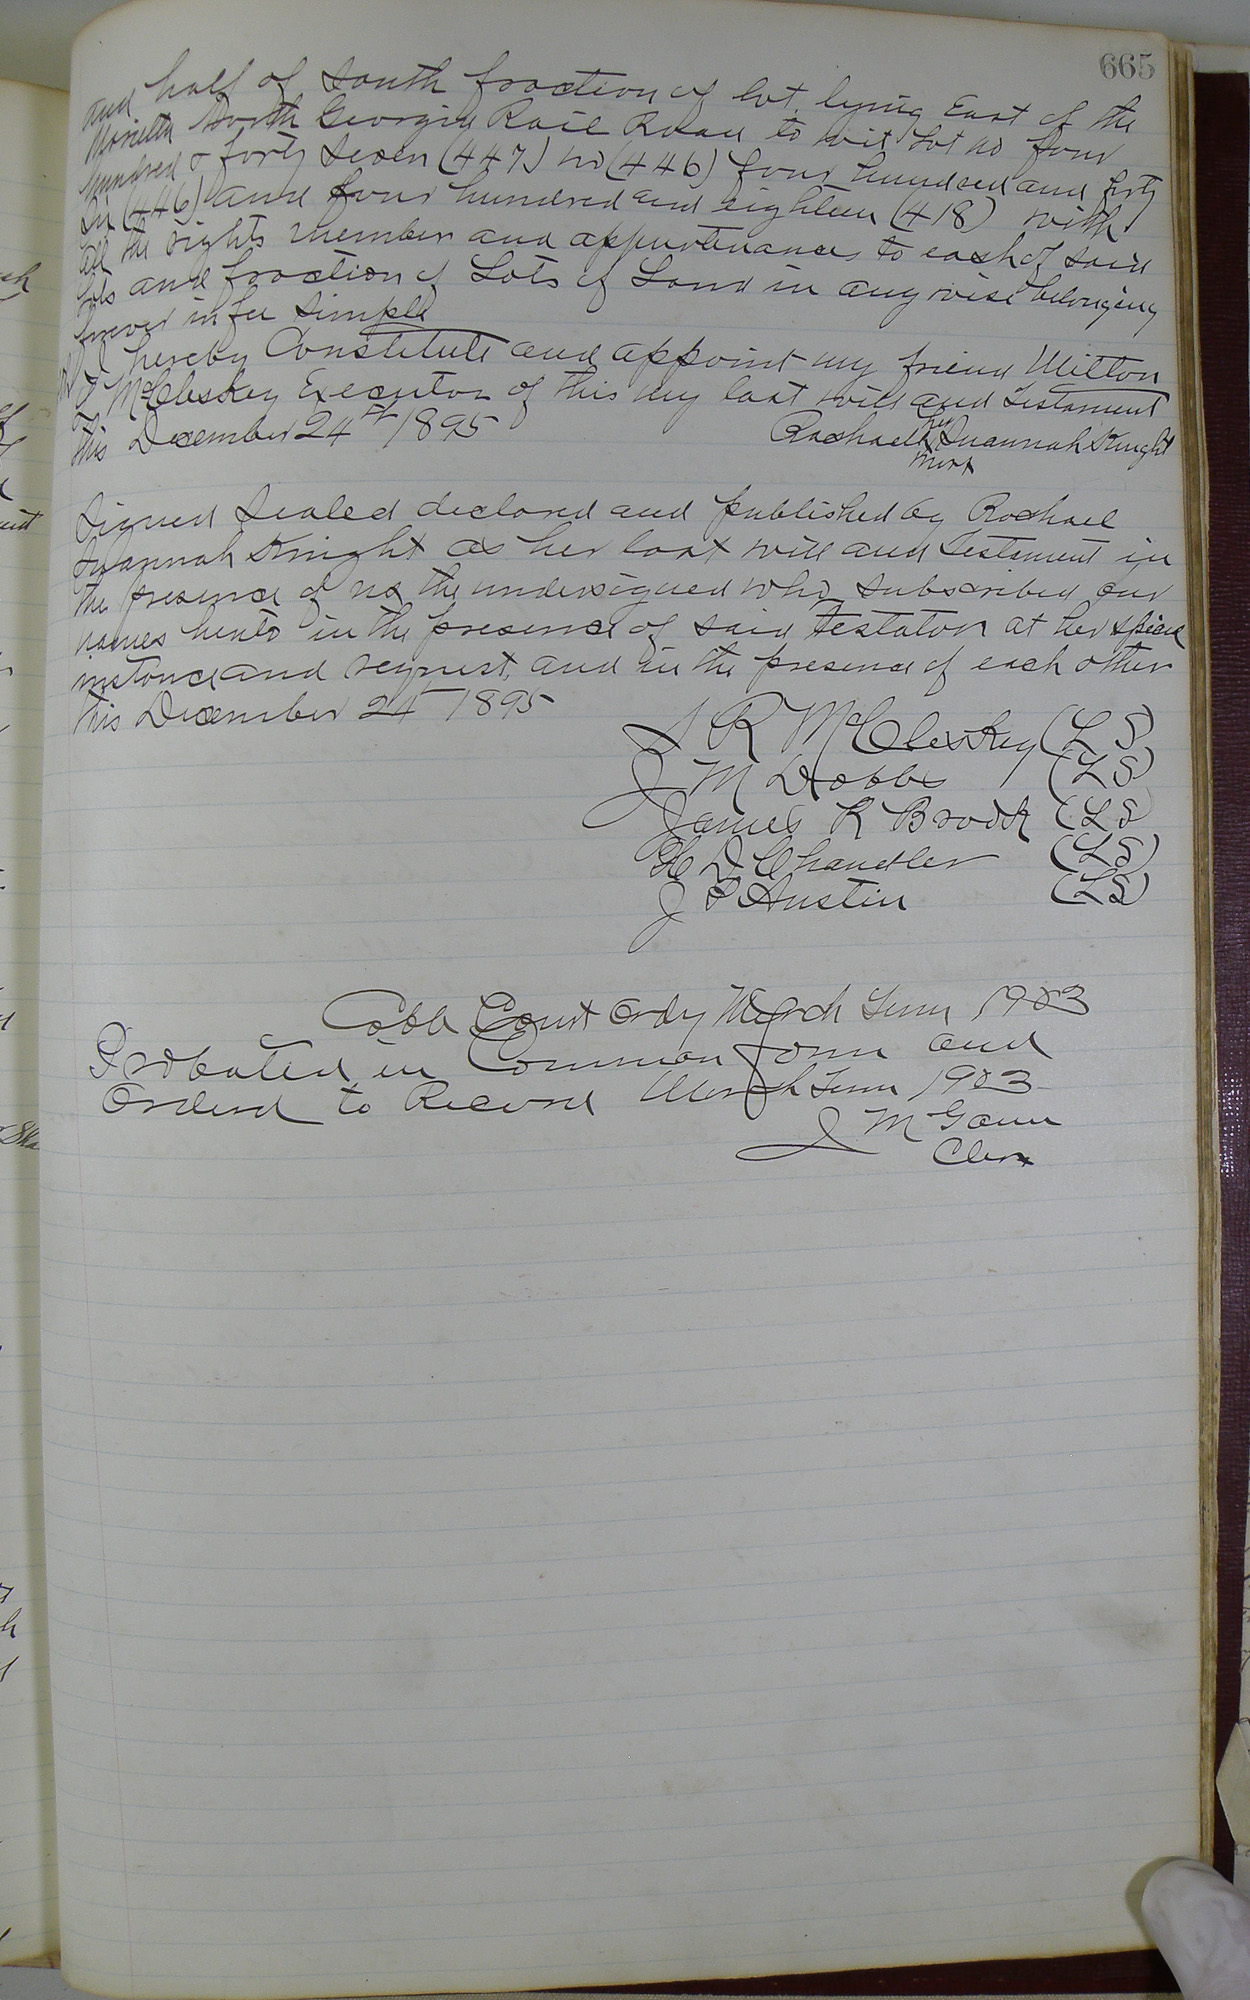 665
and half of South fraction of lot lying East of the
Marietta North Georgia Rail Road to wit Lot no four
hundred & forty seven (447) no (446) four hundred and forty
six (446) and four hundred and eighteen (418) with
all the rights member and appurtenances to each of said
lots and fraction of Lots of Land in any wise belonging
forever in fee simple
I hereby Constitute and appoint my friend Milton
McCleskey Executor of this my last will and Testament
this December 24th 1895
Rachael Suannah Knight
her
mark
Signed Sealed declared and published by Rachael
Suannah Knight as her last will and Testament in
the presence of us the undersigned who subscribed our
names hereto in the presence of said Testator at her special
instance and request, and in the presence of each other
this December 24th 1895
J R McCleskey (L S)
J M Dobbs (L S)
James R Brock (L S
H D Chandler (L S)
J P Austin (L S)
Cobb Court Ordy March Term 1903
Probated in Common form and
Ordered to Record March Term 1903
J M Gann
Clerk